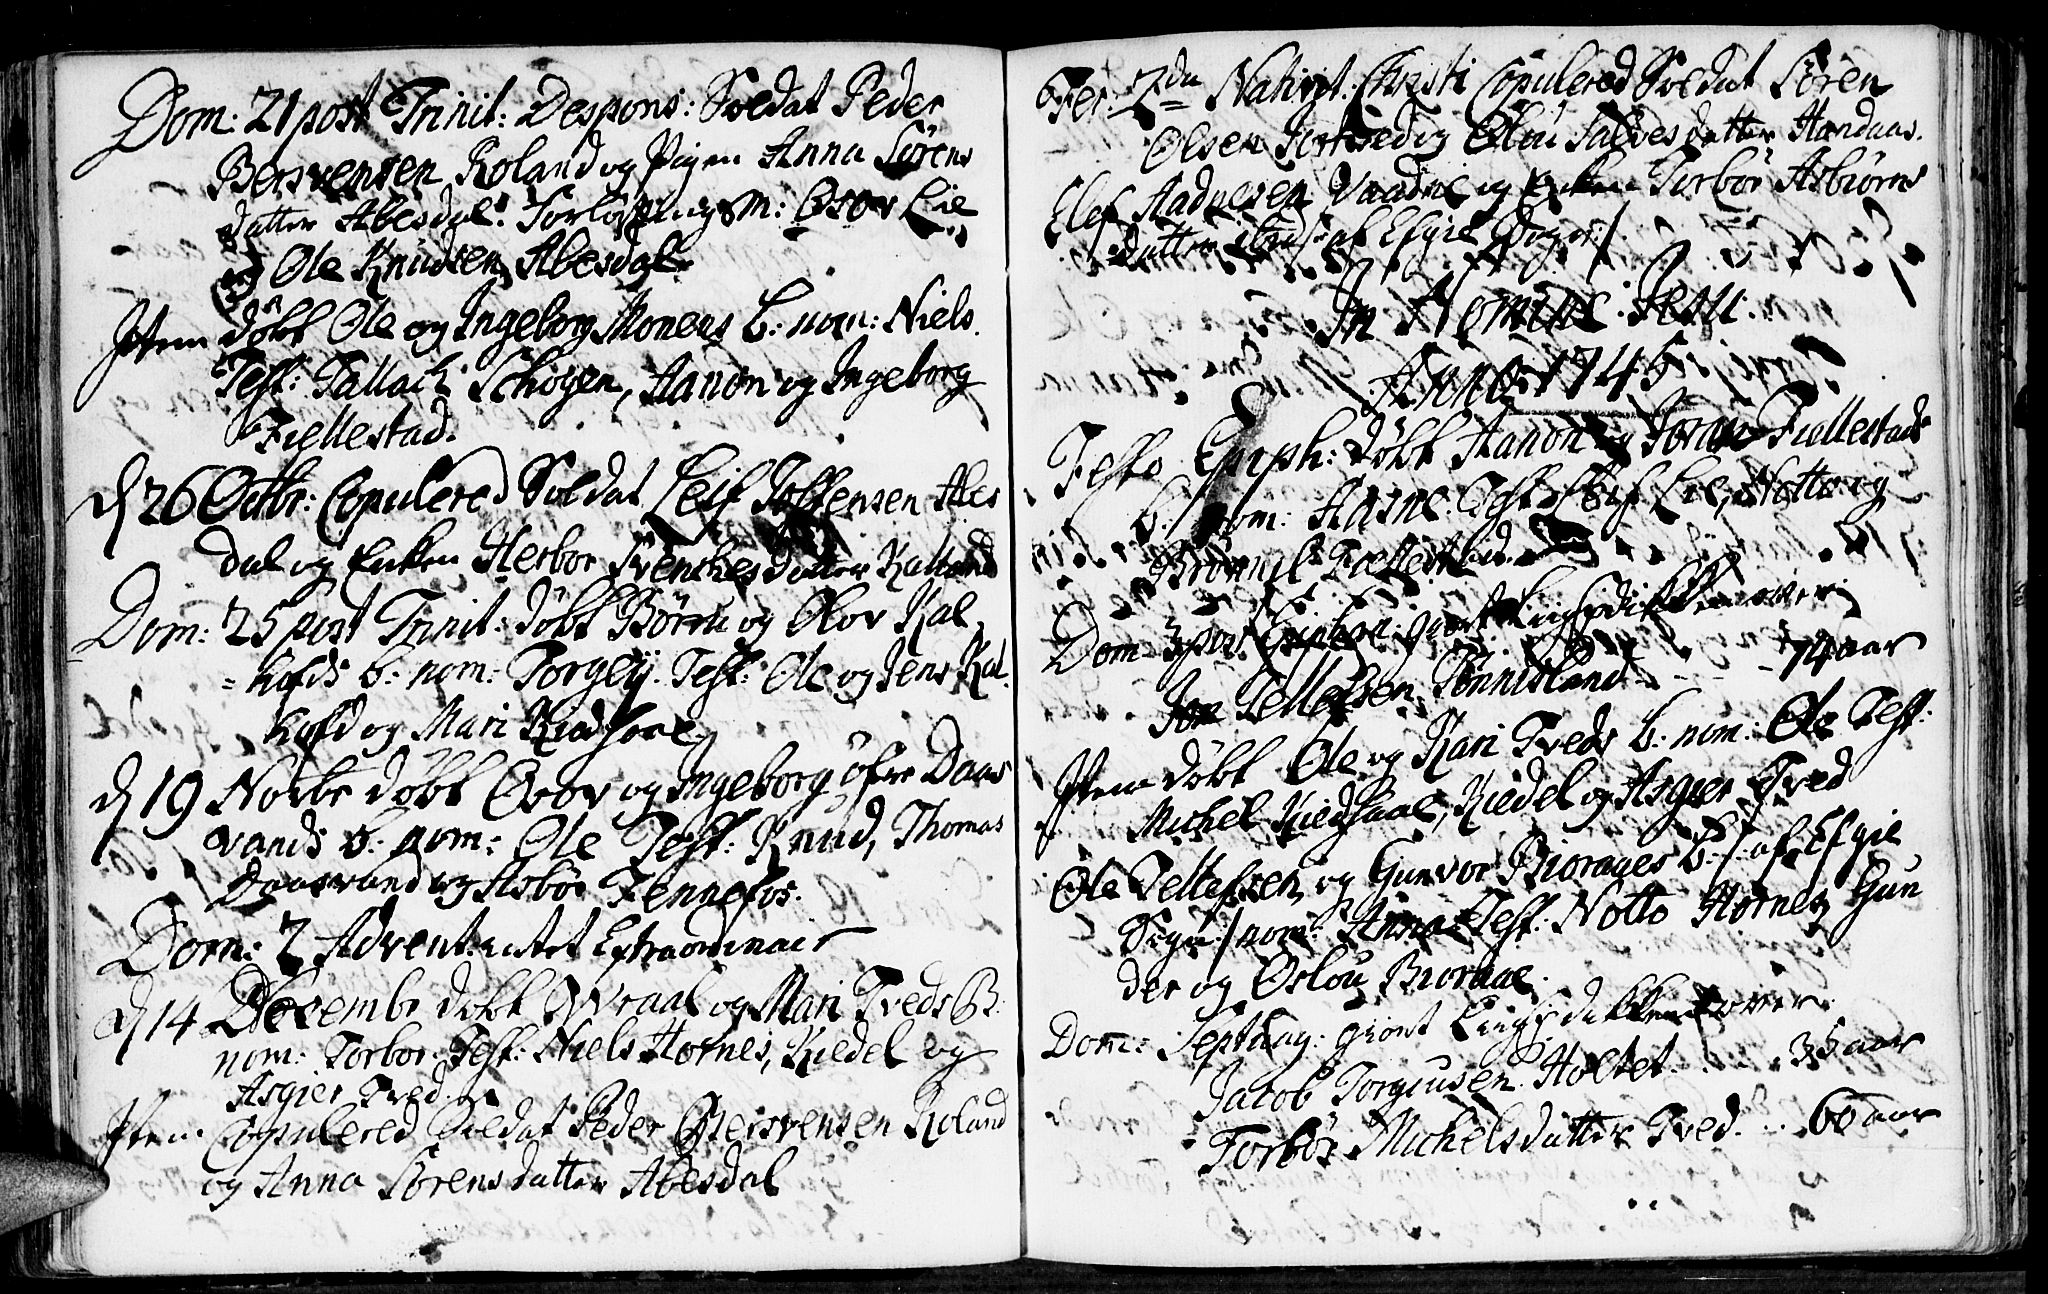 Dom: 21 post Trinit: Despons: Soldat Peder
Bersvensen Roland og Pigen Anna Sörens
datter Abesdal. Forlöfningsm: Osov Lie
og Ole Knudsen Abesdal
Item döbt Ole og Ingeborg Monens b: nom: Niels.
Test: Tallach Schogen, Aanon og Ingeborg
Fiellestad.
d 26 Octbr: Copulered Soldat Leif Tollefsen Abes
dal og Enken Herbor Svenches datter Kalland
Dom: 25 post Trinit: döbt Börru og Olov Kal
= hofds b: nom: Torgeÿ. Test: Ole og Jens Kal
hofd og Mari Kiedsaae
d 19 Novbr döbt Osov og Ingeborg öfre Daas
vands b: nom: Ole Test: Knud, Thomas
Daasvand og Asbör Fennefos.
Dom: 2 Advent: intet Extraordinair
d 14 Decembr döbt Wraal og Mari Treds B:
nom: Torbor. Test: Niels Hornes, Kiedel og
Asgier Tred.
Item Copulered Soldat Peder Bersvensen Roland
og Anna Sörensdatter Abesdal
Fer: 2da Nativit: Christi Copulered Soldat Sören
Olsen og Olou Salvesdatter Handaas.
Elef Aadnesen Vaadne og Enken Torbör Asbiörns
datter af Efgie Sogn /
In Nomine Jesu.
Anno 1745.
Festo Epiph: döbt Aanon og Joran Fiellestads
b: nom: Aasne. Test: Leif Lie, Notto og
Brönnil Fiellestad.
Dom 3 post Epiphan: giort Liigprædikken over
Jon Tellefsen Tönnesland - - - 74 aar
Item döbt Ole og Kari Treds b: nom: Ole Test:
Michel Kiedsaae, Kiedel og Asgier Tred
Ole Tellefsen og Gunvor Biorages b: / af Efgie
Sogn / nom: Anna Test: Notto Hornes Gun
der og Oslou Bioraae.
Dom: Septuag: giort Liigprædikken over
Jacob Torgiusen Holtet. . . . . 35 aar
Torbör Michelsdatter Tred. . . . 60 aar